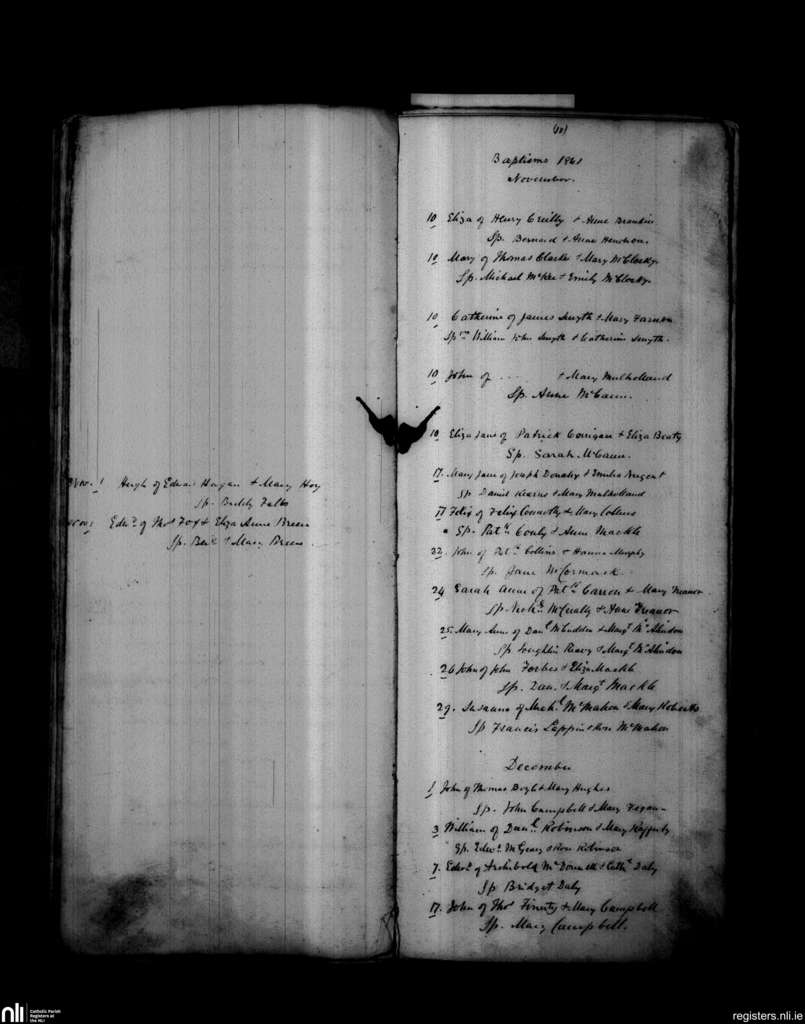 Nov. 1 Hugh of Edwd Hagan & Mary Hoy
Sp. Biddy Fallos
Nov. 1 Edwd. of Thos Fox & Eliza Anne Breen
Sp. & Mary Breen
(18)
Baptisms 1861
November.
10 Eliza of Henry Creilly & Anne
Sp. Bernard & Anne
10 Mary of Thomas Clarke & Mary McClosky.
Sp. Michael McKee & Emily McClosky.
10 Catherine of James Smyth & Mary
Sprs William John Smyth & Catherine Smyth.
10 John of ... & Mary Mulholland
Sp. Anne McCann.
10 Eliza Jane of Patrick Corrigan & Eliza Beaty
Sp. Sarah McCann.
17. Mary Jane of Joseph Donaley & Emilia Nugent
Sp Daniel Kearns & Mary Mulholland
17 Felix of Felix Connolly & Mary Collins
Sp. Patk Conly & Anne Mackle
22. John of Patk Collins & Hanna Murphy
Sp. Jane McCormack.
24 Sarah Anne of Patk Carron & Mary Treanor
Sp. & Anne Treanor
25. Mary Anne of Danl McCudden & Margt McAlindon
Sp Loughlin Reavy & Margt McAlindon
26 John of John Forbes & Eliza Mackle
Sp. Dan. & Margt Mackle
29. Susanna of Michl McMahon & Mary Roberts
Sp Francis Lappin & Rose McMahon
December
1 John of Thomas Boyle & Mary Hughes
Sp. John Campbell & Mary Fegan
3 William of Danl. Robinson & Mary Rafferty
Sp. Edwd. McGeary & Rose Robinson
7. Edwd. of Archibold McDonnell & Cathe Daly
Sp Bridget Daly
17. John of Thos Finerty & Mary Campbell
Sp. Mary Campbell.
nli
Catholic Parish
Registers at
the NLI
registers.nli.ie